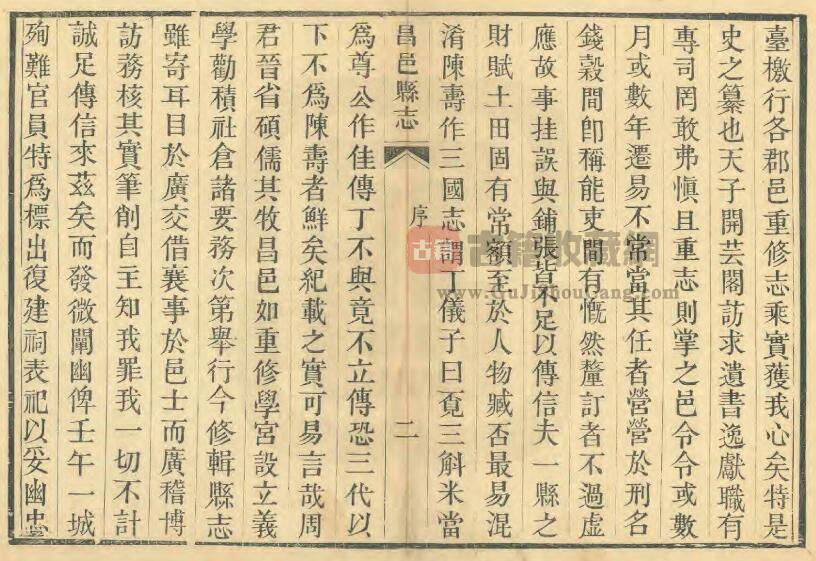 臺檄行各郡邑重修志乘實獲我心矣特是
史之纂也天子開芸閣訪求遺書逸獻職有
專司罔敢弗愼且重志則掌之邑令令或數
月或數年遷易不常當其任者營營於刑名
錢穀間卽稱能吏間有慨然釐訂者不過虛
應故事挂誤與鋪張皆不足以傳信夫一縣之
財賦土田固有常額至於人物臧否最易混
淆陳壽作三國志謂丁儀子曰覓三斛米當
昌邑縣志
序
二
爲尊公作佳傳丁不與竟不立傳恐三代以
下不爲陳壽者鮮矣紀載之實可易言哉周
君晉省碩儒其牧昌邑如重修學宮設立義
學勸積社倉諸要務次第舉行今修輯縣志
雖寄耳目於廣交借襄事於邑士而廣稽博
訪務核其實筆削自主知我罪我一切不計
誠足傳信來茲矣而發微闡幽俾壬午一城
殉難官員特爲標出復建祠表祀以妥幽忠
古籍
古籍收藏網
www.GuJiShouCang.com